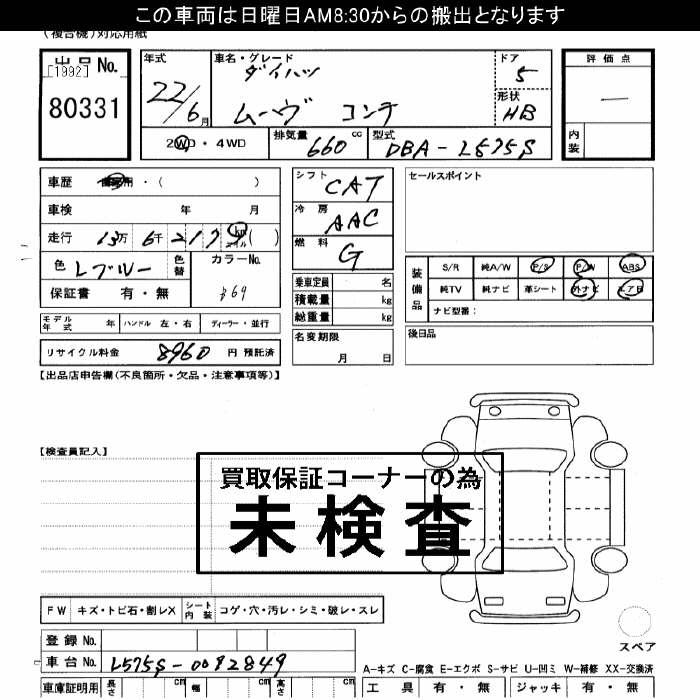 この車両は日曜日AM8:30からの搬出となります
(複合機)対応用紙
出品No.
[1992]
80331
年式
22/6月
車名・グレード
ダイハツ
ムーヴ コンテ
ドア
5
形状
HB
2WD・4WD
排気量 660 cc
型式 DBA-L575S
評価点
―
内装
車歴 自家用・( )
車検 年 月
走行 13万 6千 217 km マイル ( )
色 Lブルー 色替
カラーNo.
保証書 有・無
モデル年式 年 ハンドル 左・右 ディーラー・並行
リサイクル料金 8960 円 預託済
シフト CAT
冷房 AAC
燃料 G
乗車定員 名
積載量 kg
総重量 kg
名変期限
月 日
セールスポイント
装備品
S/R 純A/W P/S P/W ABS
純TV 純ナビ 革シート 外ナビ エアB
ナビ型番:
後日品
【出品店申告欄(不良箇所・欠品・注意事項等)】
【検査員記入】
買取保証コーナーの為
未検査
FW キズ・トビ石・割レX シート内装 コゲ・穴・汚レ・シミ・破レ・スレ
登録No.
車台No. L575S-0082849
車庫証明用 長さ cm 幅 cm 高さ cm
スペア
A-キズ C-腐食 E-エクボ S-サビ U-凹ミ W-補修 XX-交換済
工具 有・無 ジャッキ 有・無